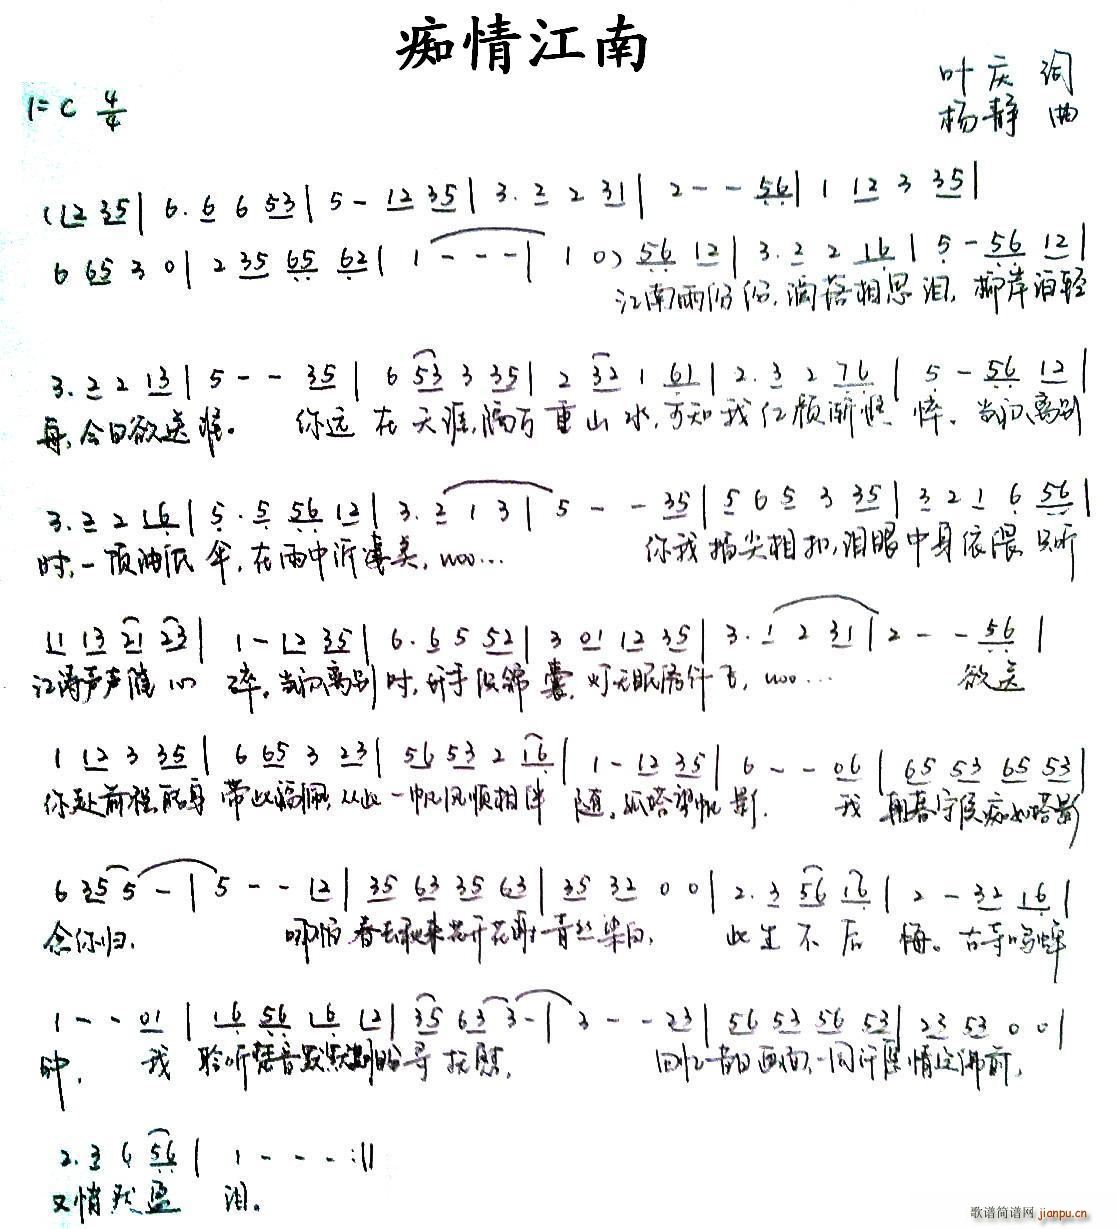 痴情江南
叶庆 词
1=C 4/4
杨静 曲
(12 35| 6. 6 6 53| 5 - 12 35| 3. 2 2 31| 2 - - 56| 1 12 3 35|
6 65 3 0| 2 35 65 62| 1 - - -| 1 0) 56 12| 3. 2 2 16| 5 - 56 12|
江南雨份份,滴落相思泪,柳岸泊轻
3. 2 2 13| 5 - - 35| 6 53 3 35| 2 32 1 61| 2. 3 2 76| 5 - 56 12|
今日欲送谁。 你远在天涯,隔万重山水,可知我红颜渐憔悴。当初离别
3. 2 2 16| 5. 5 56 12| 3. 2 1 3| 5 - - 35| 5 6 5 3 35| 3 2 1 6 56|
时,一顶油纸伞,在雨中诉凄美,woo... 你我指尖相扣,泪眼中身依偎 只听
11 13 21 23| 1 - 12 35| 6. 6 5 52| 3 01 12 35| 3. 1 2 31| 2 - - 56|
江涛声声随心碎,当初离别时,锦囊, woo... 欲送
1 12 3 35| 6 65 3 23| 56 53 2 16| 1 - 12 35| 6 - - 06| 65 53 65 53|
你赴前程 带此福佩,从此一帆风顺相伴随,孤塔望帆影. 我 朝暮守侯痴如塔影
6 35 5 -| 5 - - 12| 35 63 35 63| 35 32 0 0| 2. 3 56 16| 2 - 32 16|
念你归. 哪怕春去秋来花开花谢青丝染白, 此生不后悔。古寺鸣蝉
1 - - 01| 16 56 16 12| 35 63 3 -| 3 - - 23| 56 53 56 53| 23 53 0 0|
我聆听梵音默默 寻抚慰, 回忆昔日画面,一同许愿情定佛前,
2. 3 6 56| 1 - - - :||
又悄然盈 泪。
歌谱简谱网 jianpu.cn